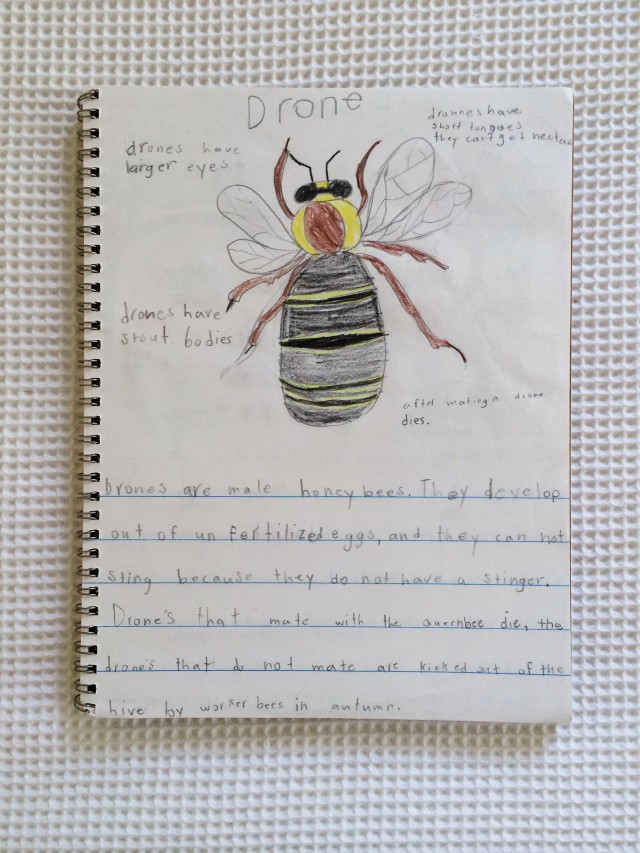 Drone
dronnes have
short tongues
they can't get nectar
drones have
larger eyes
drones have
stout bodies
after mating a drone
dies.
Drones are male honey bees. They develop
out of un fertilized eggs, and they can not
sting because they do not have a stinger.
Drone's that mate with the queenbee die, the
drone's that do not mate are kicked out of the
hive by worker bees in autumn.